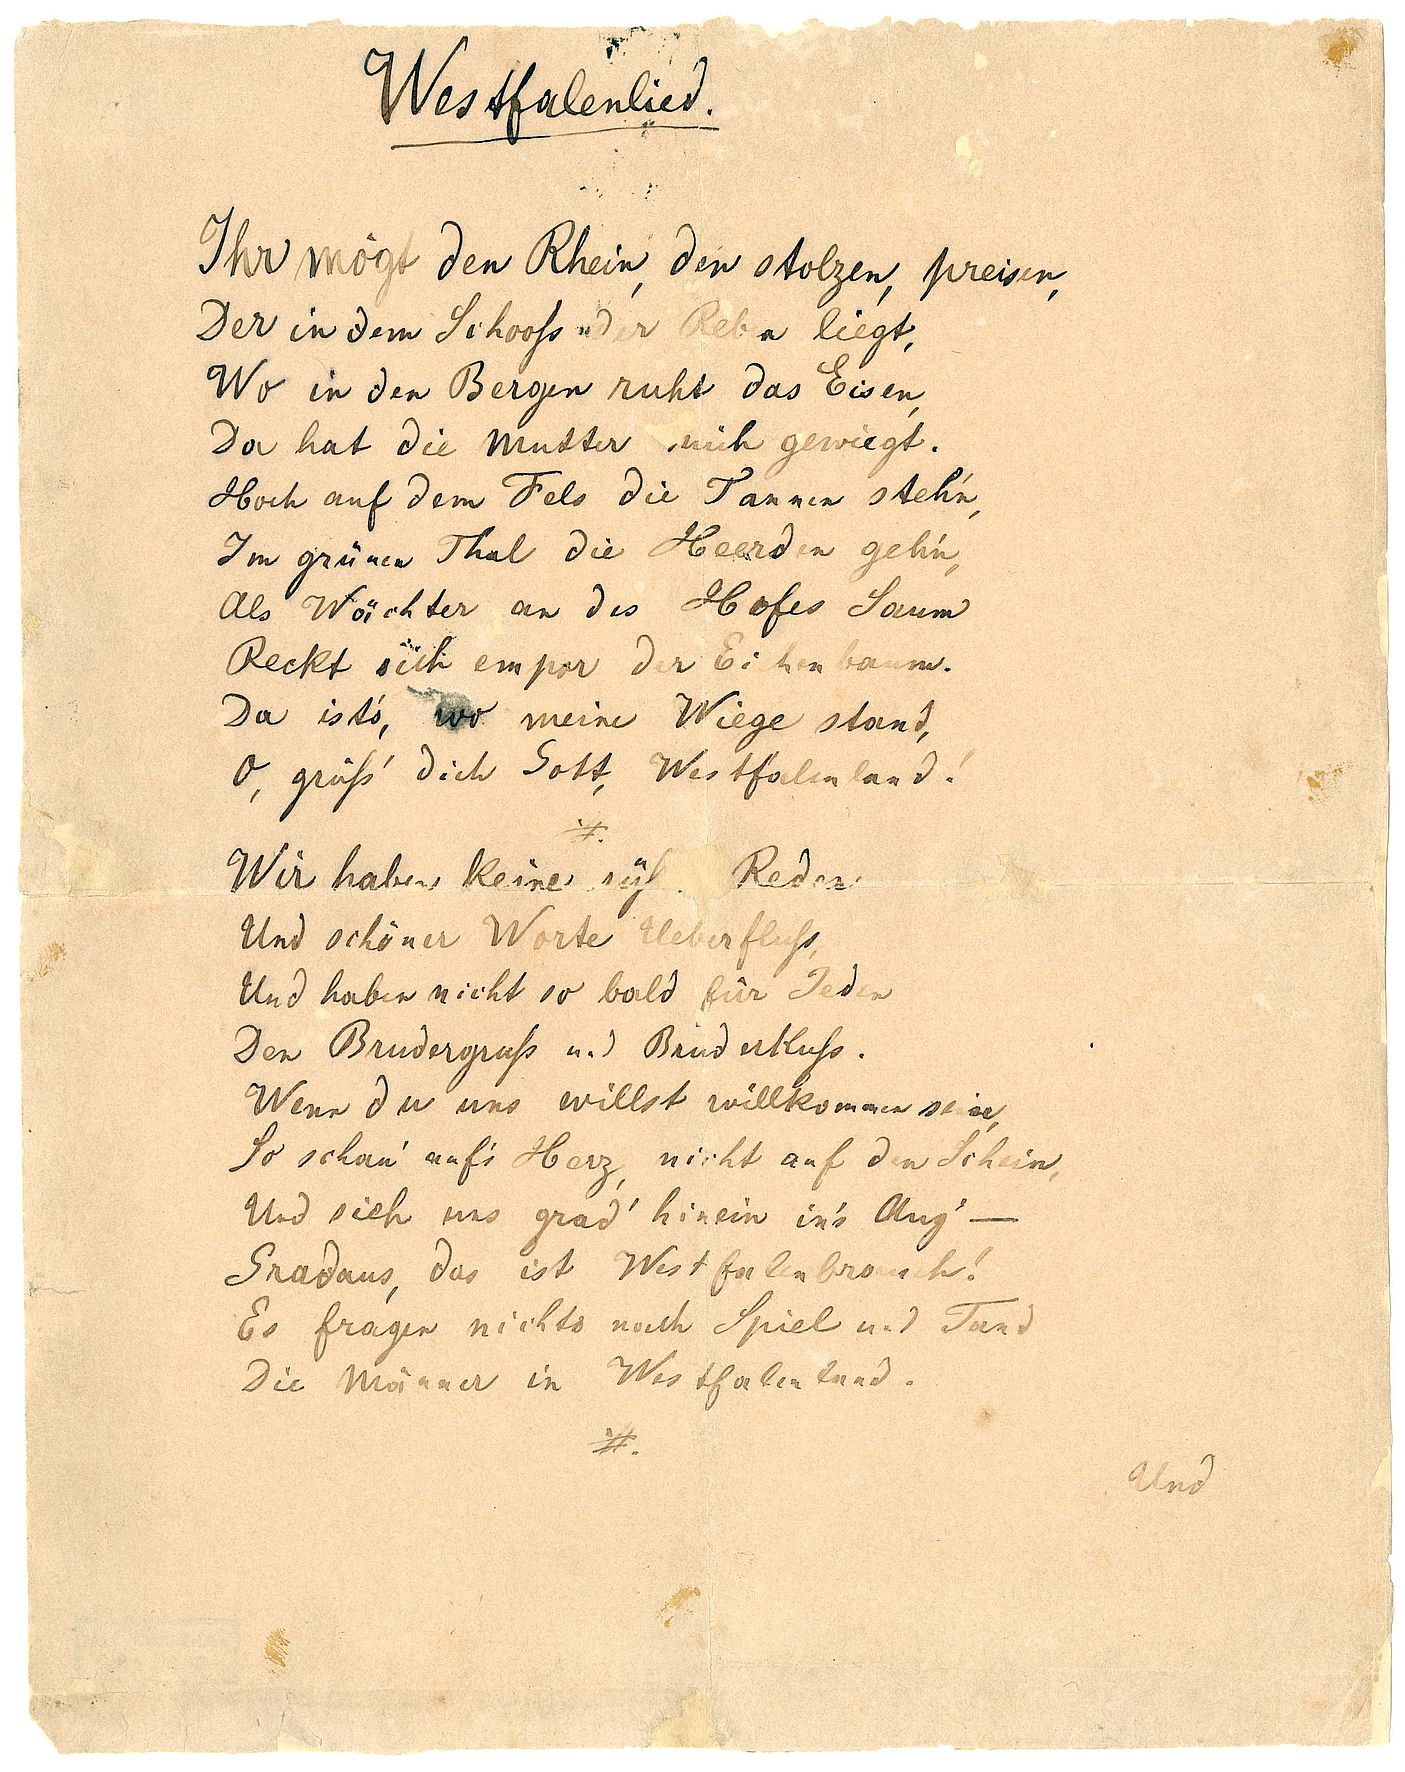 Westfalenlied.
Ihr mögt den Rhein, den stolzen, preisen,
Der in dem Schooß der Reben liegt,
Wo in den Bergen ruht das Eisen,
Da hat die Mutter mich gewiegt.
Hoch auf dem Fels die Tannen steh'n,
Im grünen Thal die Heerden geh'n,
Als Wächter an des Hofes Saum
Reckt sich empor der Eichenbaum.
Da ist's, wo meine Wiege stand,
O, grüß' dich Gott, Westfalenland!
#.
Wir haben keine Reden
Und schöner Worte Ueberfluß,
Und haben nicht so bald für Jeden
Den Brudergruß und Bruderkuß.
Wenn du uns willst willkommen sein,
So schau' auf's Herz, nicht auf den Schein,
Und sieh uns grad' hinein in's Aug' —
Gradaus, das ist Westfalenbrauch!
Es fragen nichts nach Spiel und Tand
Die Männer in Westfalenland.
#.
Und